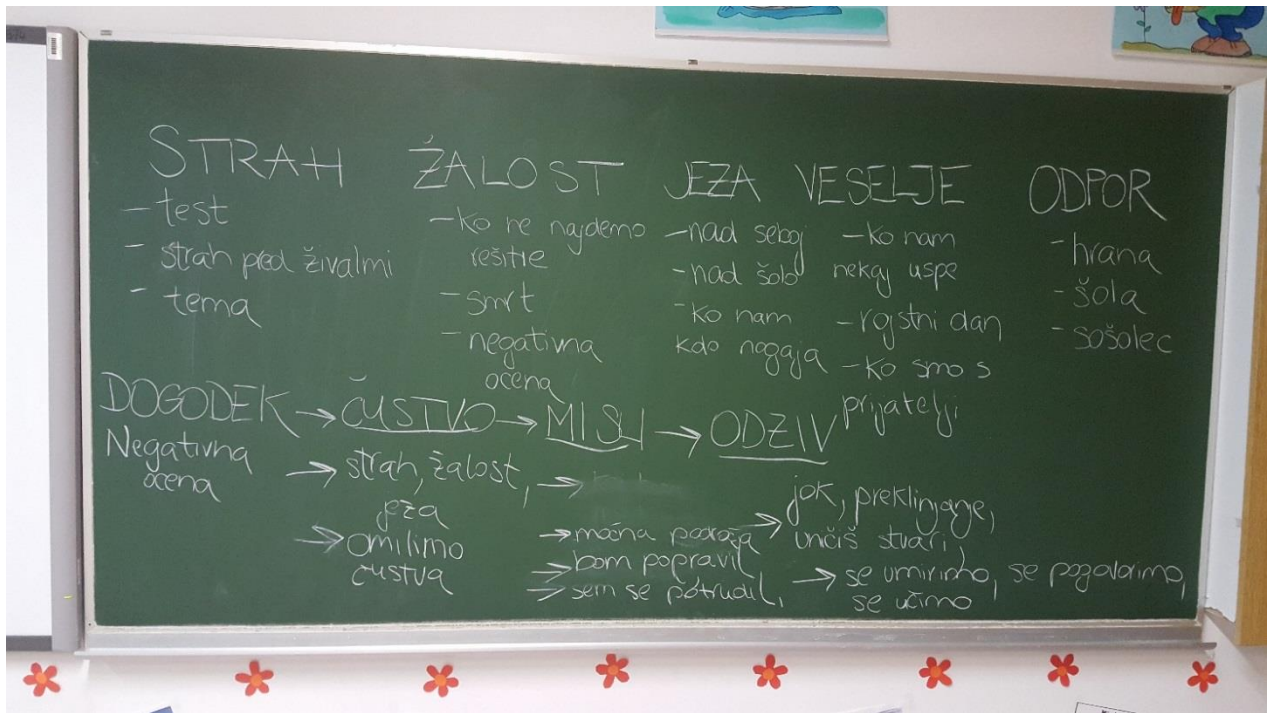 STRAH
- test
- strah pred živalmi
- tema
ŽALOST
- ko ne najdemo
rešitve
- smrt
- negativna
ocena
JEZA
- nad seboj
- nad šolo
- ko nam
kdo nagaja
VESELJE
- ko nam
nekaj uspe
- rojstni dan
- ko smo s
prijatelji
ODPOR
- hrana
- šola
- sošolec
DOGODEK → ČUSTVO → MISLI → ODZIV
Negativna
ocena
→ strah, žalost, →
jeza
→ omilimo
čustva
→ močna
→ bom popravil
→ sem se potrudil,
→ jok, preklinjanje,
uničiš stvari,
→ se umirimo, se pogovorimo,
se učimo